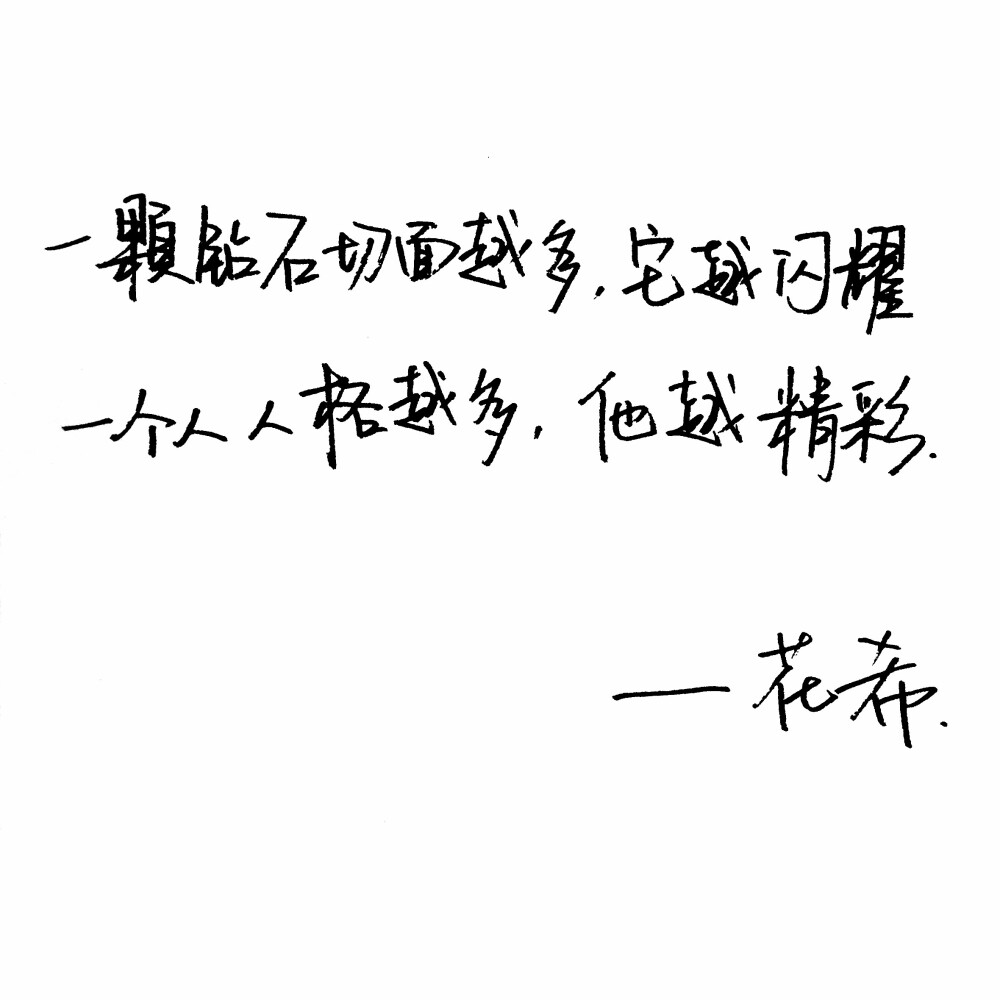 一顆钻石切面越多,它越闪耀
一个人人格越多,他越精彩.
——花希.